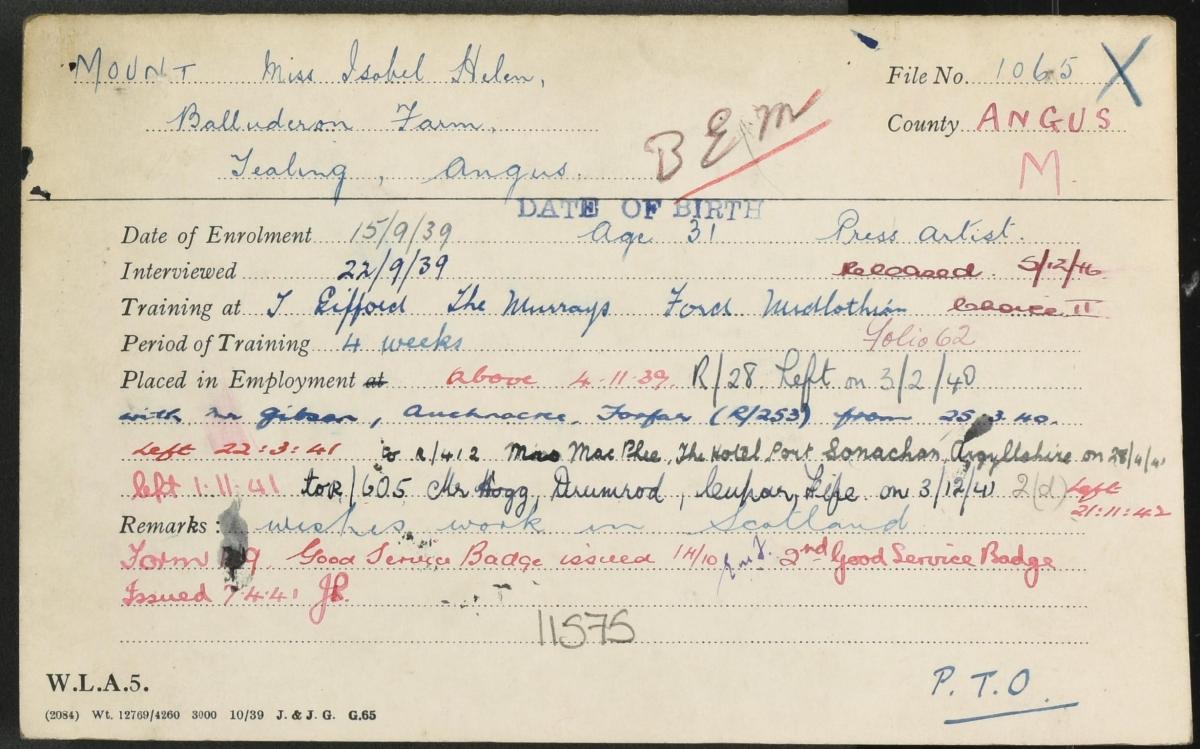 MOUNT Miss Isabel Helen, File No. 1065 X
Balluderon Farm, County ANGUS
Tealing, Angus. BEM M
DATE OF BIRTH
Date of Enrolment 15/9/39 Age 31 Press Artist.
Interviewed 22/9/39 Released 5/12/46
Training at J Gifford The Murrays Ford Midlothian Choice II
Period of Training 4 weeks Folio 62
Placed in Employment at above 4.11.39. R/28 Left on 3/2/40
with Mr Gibson, Auchnacree, Forfar (R/253) from 25.3.40.
Left 22:3:41 to R/412 Mrs MacPhee, The Hotel Port Sonachan, Argyllshire on 28/4/41
left 1.11.41 to R/605 Mr Hogg, Drumrod, Cupar, Fife on 3/12/41 2(d) Left
21:11:42
Remarks: wishes work in Scotland
Form Good Service Badge issued 2nd Good Service Badge
Issued 7.4.41
11575
W.L.A.5. P.T.O.
(2084) Wt. 12769/4260 3000 10/39 J. & J. G. G.65